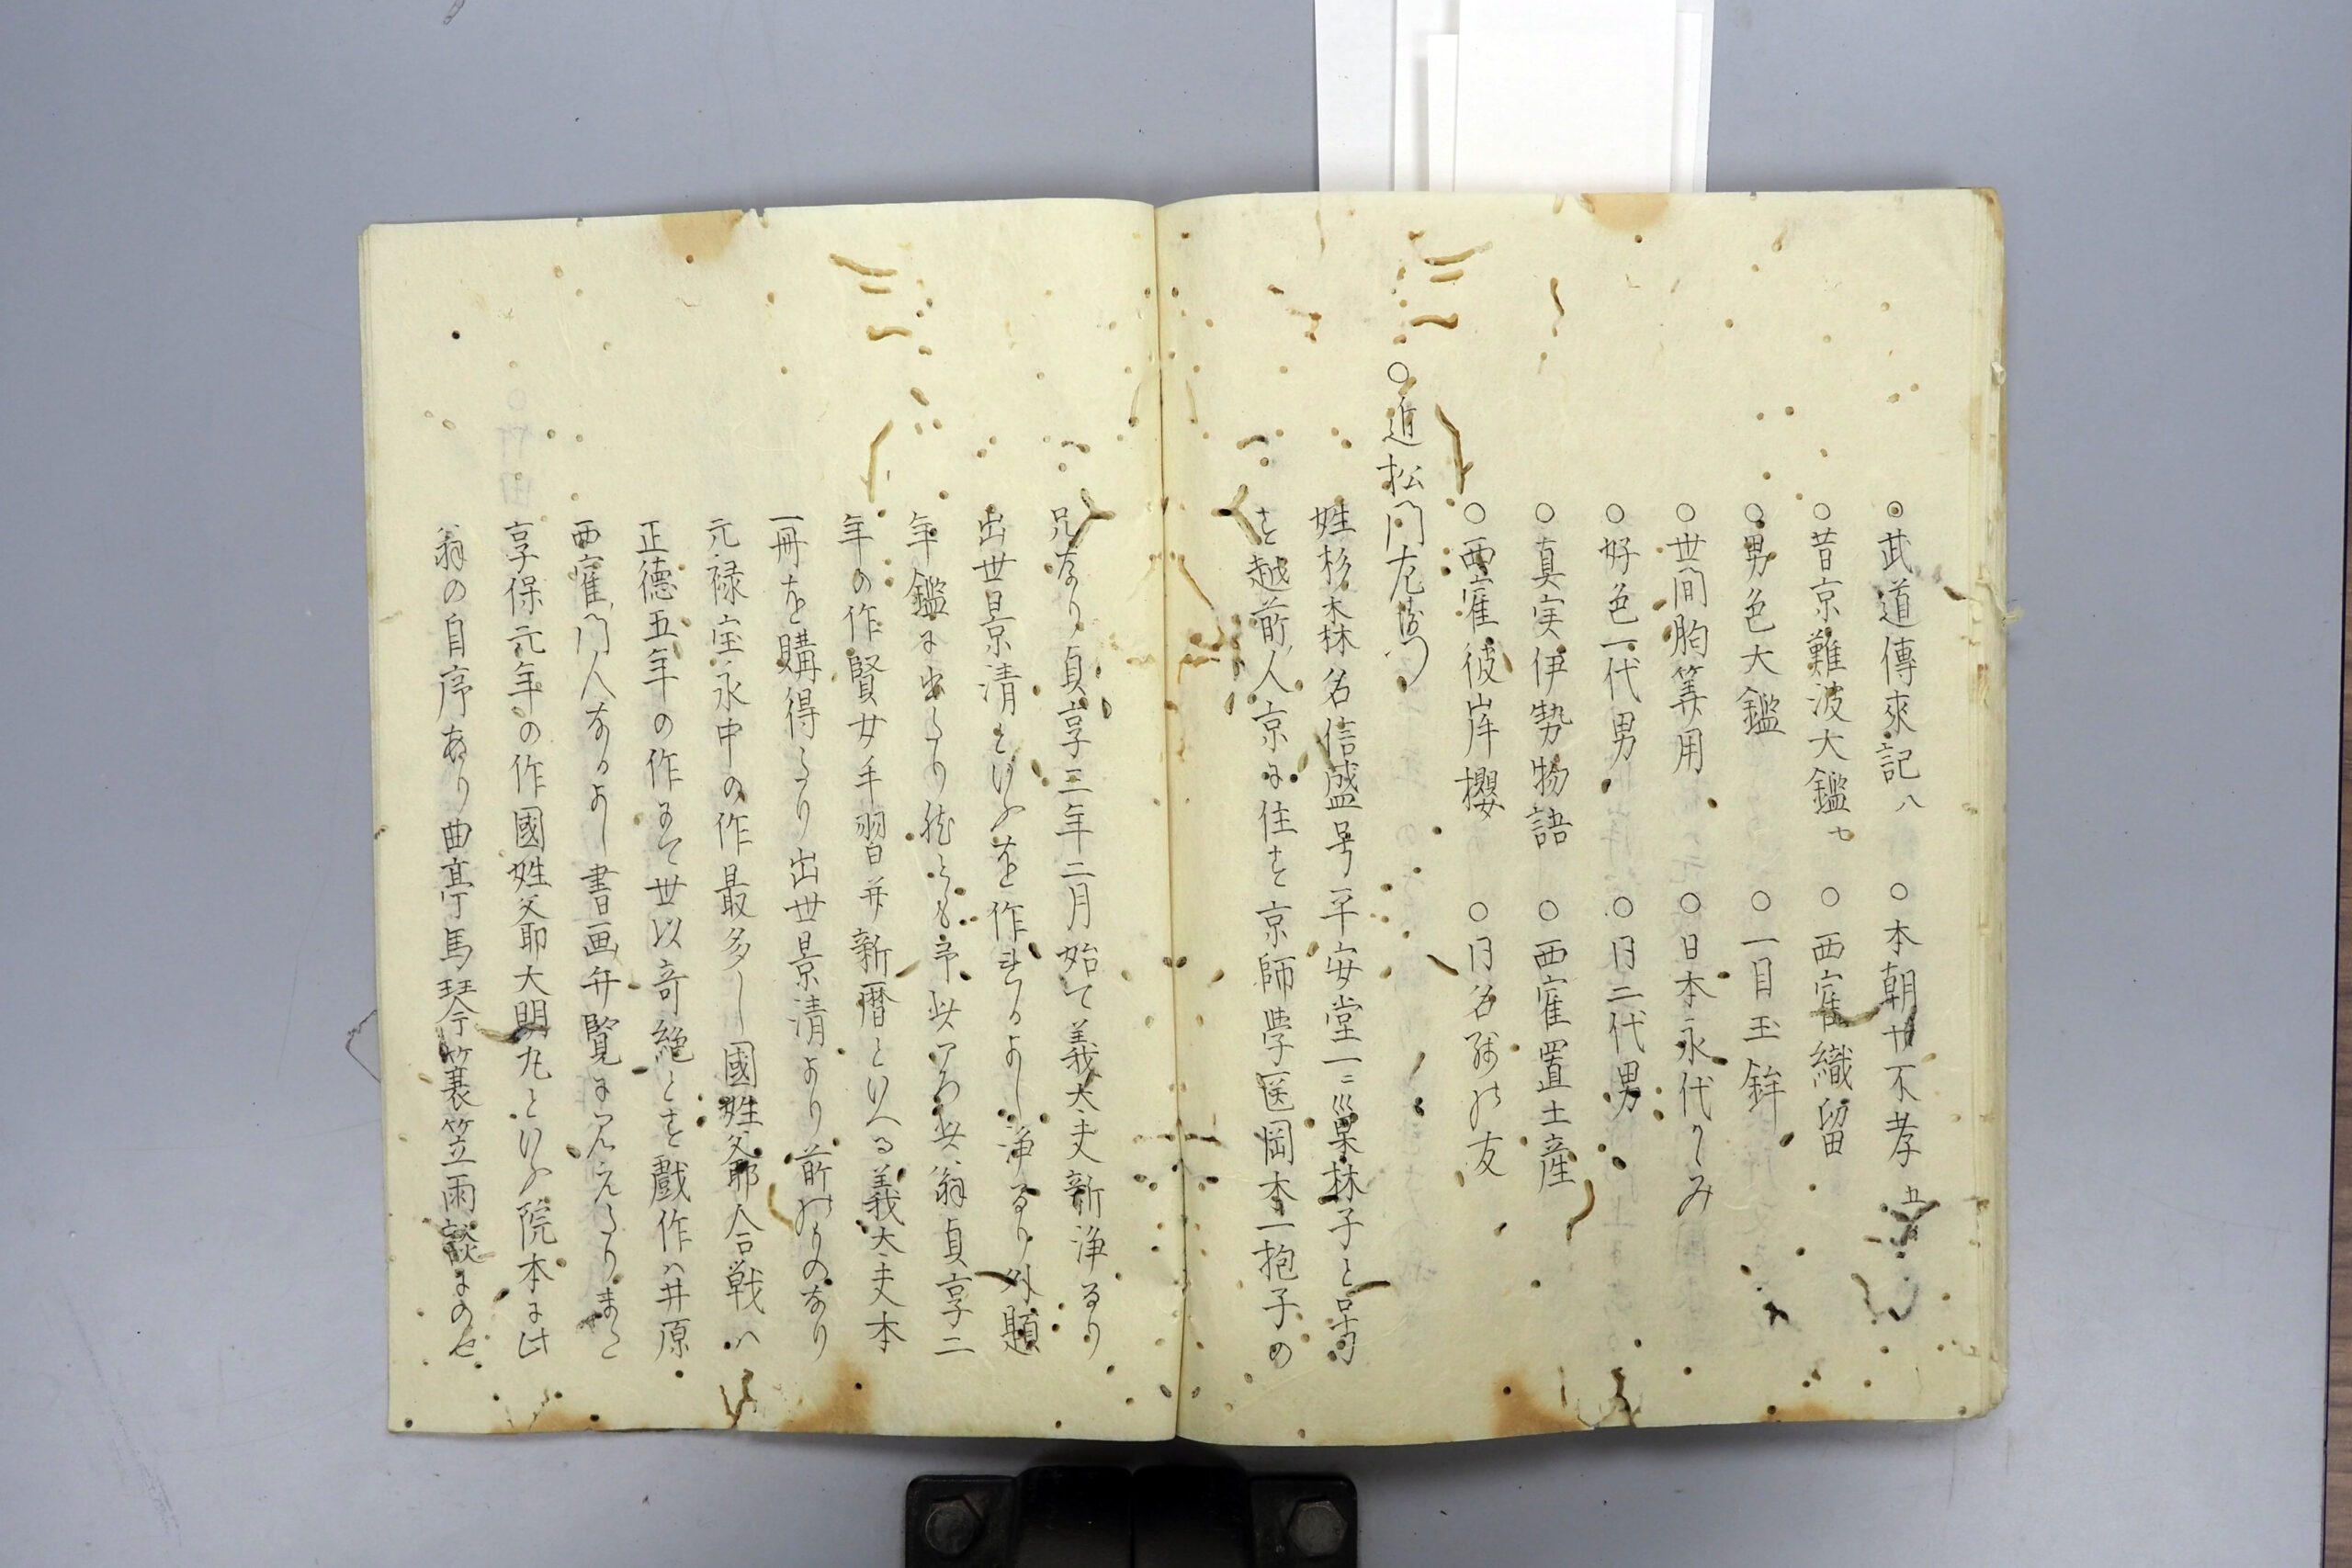 ◎武道傳來記八　○本朝廿不孝五
○昔京難波大鑑七　○西寉織留
○男色大鑑　○一目玉鉾
○世間胸算用　○日本永代くらみ
○好色一代男　○同二代男
○真実伊勢物語　○西寉置土産
○西寉彼岸櫻　○同名残の友
○近松門左衛門
姓杉森名信盛号平安堂一ニ巣林子と号
す越前人京に住す京師学医岡本一抱子の
兄なり貞享三年二月始て義太夫新浄るり
出世景清といふを作するよし浄るり外題
年鑑に出たり然とも予此ころ此翁貞享二
年の作賢女手習并新暦といへる義太夫本
一冊を購得たり出世景清より前のものなり
元禄宝永中の作最多し國姓爺合戦ハ
正徳五年の作にて世以奇絶とす戯作ハ井原
西寉門人なるよし書画弁覧に見えたりまた
享保元年の作國姓爺大明丸といふ院本に此
翁の自序あり曲亭馬琴簑笠雨談にのせ